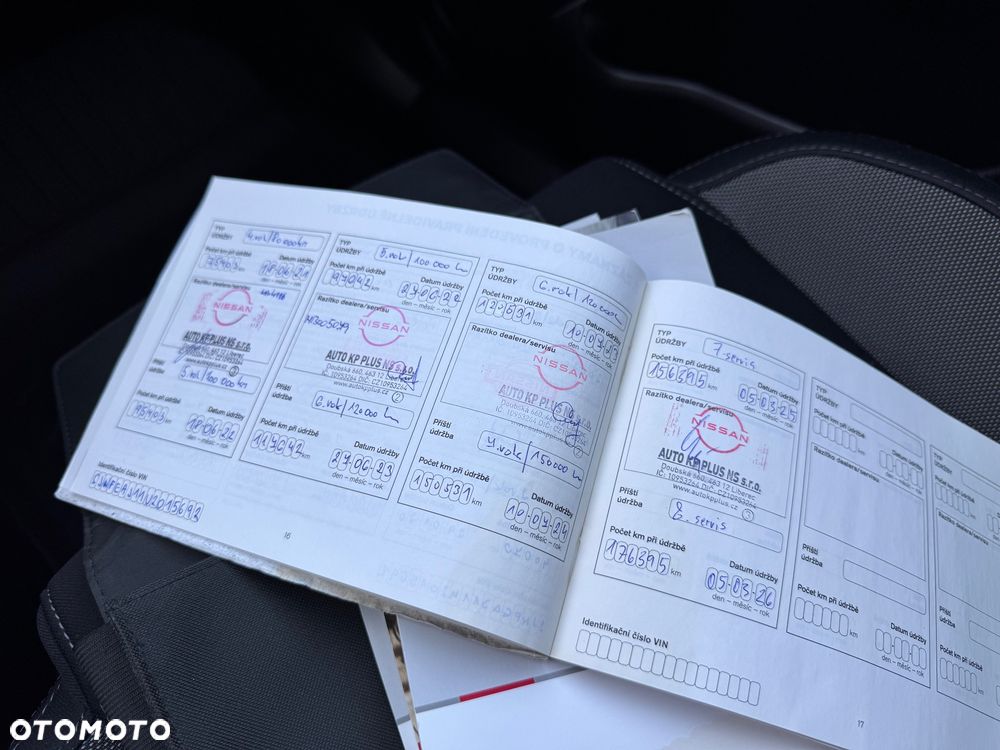 TYP ÚDRŽBY 4.rok/80 000 km
Počet km při údržbě
Datum údržby
75403 km
18-06-21
den – měsíc – rok
Razítko dealera/servisu
NISSAN
AUTO KP PLUS NS s.r.o.
Doubská 660, 463 12 Liberec
IČ: 10953264 DIČ: CZ10953264
www.autokpplus.cz
3
Příští údržba
5.rok/100 000 km
Počet km při údržbě
Datum údržby
95403 km
18-06-22
den – měsíc – rok
Identifikační číslo VIN
TYP ÚDRŽBY 5.rok/100.000 km
Počet km při údržbě
Datum údržby
97042 km
27-06-22
den – měsíc – rok
Razítko dealera/servisu
NISSAN
AUTO KP PLUS NS s.r.o.
Doubská 660, 463 12
IČ: 10953264 DIČ: CZ10953264
www.autokpplus.cz
2
Příští údržba
6.rok/12000 km
Počet km při údržbě
Datum údržby
117042 km
27-06-23
den – měsíc – rok
16
TYP ÚDRŽBY 6.rok/120000km
Počet km při údržbě
Datum údržby
130531 km
10-07-23
den – měsíc – rok
Razítko dealera/servisu
NISSAN
AUTO KP PLUS NS s.r.o.
Doubská 660, 463
IČ: 10953264
www.autokpplus.cz
2
Příští údržba
7.rok/150000 km
Počet km při údržbě
Datum údržby
150531 km
10-07-24
den – měsíc – rok
TYP ÚDRŽBY 7-servis
Počet km při údržbě
Datum údržby
156395 km
05-03-25
den – měsíc – rok
Razítko dealera/servisu
NISSAN
AUTO KP PLUS NS s.r.o.
Doubská 660, 463 12 Liberec
IČ: 10953264 DIČ: CZ10953264
www.autokpplus.cz
3
Příští údržba
8. servis
Počet km při údržbě
Datum údržby
176395 km
05-03-26
den – měsíc – rok
Identifikační číslo VIN
TYP ÚDRŽBY
Počet km při údržbě
Datum údržby
km
den – měsíc – rok
Razítko dealera/servisu
Příští údržba
Počet km při údržbě
Datum údržby
km
den – měsíc – rok
17
TYP ÚDRŽBY
Počet km při údržbě
km
Razítko dealera/servisu
Příští údržba
Počet km při údržbě
km
OTOMOTO